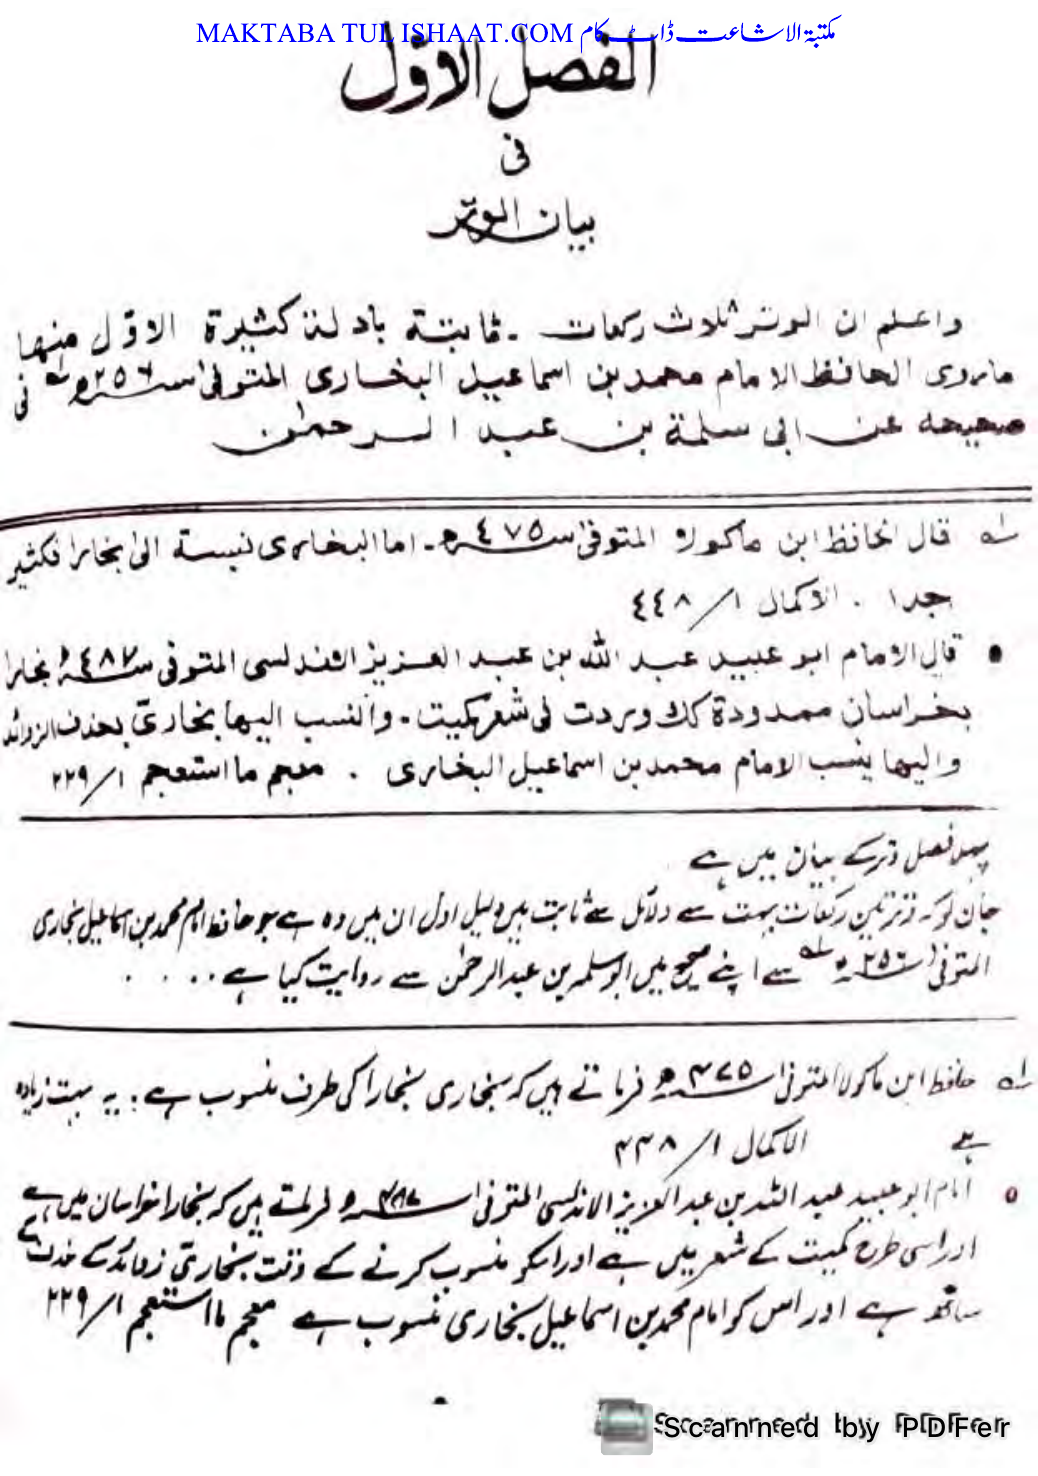 MAKTABA TUL ISHAAT.COM مکتبۃ الاشاعت ڈاٹ کام
الفصل الاوّل
فی
بیان الوتر
واعلم ان الوتر ثلاث رکعات ـ ثابتة بادلة کثیرة الاوّل منها
ماروی الحافظ الامام محمد بن اسماعیل البخاری المتوفیٰ سنه ٢٥٦ھ له فی
صحیحه عن ابی سلمة بن عبد الرحمٰن
له قال الحافظ ابن ماکولا المتوفیٰ سنه ٤٧٥ھ ـ اما البخاری نسبة الیٰ بخارا فکثیر
جدا . الاکمال ١/ ٤٤٨
• قال الامام ابو عبید عبد الله بن عبد العزیز الاندلسی المتوفی سنه ٤٨٧ھ بخارا
بخراسان ممدودة کذلک وردت فی شعر کمیت ـ والنسب الیها بخاریّ بحذف الزوائد
والیها ینسب الامام محمد بن اسماعیل البخاری . معجم ما استعجم ١/ ٢٢٩
پہلا فصل وتر کے بیان میں ہے
جان لو کہ وتر تین رکعات بہت سے دلائل سے ثابت ہیں دلیل اول ان میں وہ ہے جو حافظ امام محمد بن اسماعیل بخاری
المتوفیٰ سنه ٢٥٦ھ له سے اپنے صحیح میں ابوسلمہ بن عبدالرحمٰن سے روایت کیا ہے ....
له حافظ ابن ماکولا المتوفیٰ سنه ۴۷۵ھ فرماتے ہیں کہ بخاری بخارا کی طرف منسوب ہے : یہ بہت زیادہ
ہے الاکمال ١/ ۴۴۸
• امام ابو عبید عبد اللہ بن عبد العزیز الاندلسی المتوفیٰ سنه ۴۸۷ھ فرماتے ہیں کہ بخارا خراسان میں ہے
اور اسی طرح کمیت کے شعر میں ہے اور اسکو منسوب کرنے کے وقت بخاریّ زوائد کے حذف کے
ساتھ ہے اور اس کو امام محمد بن اسماعیل بخاری منسوب ہے معجم ما استعجم ١/ ٢٢٩
Scanned by PDFer